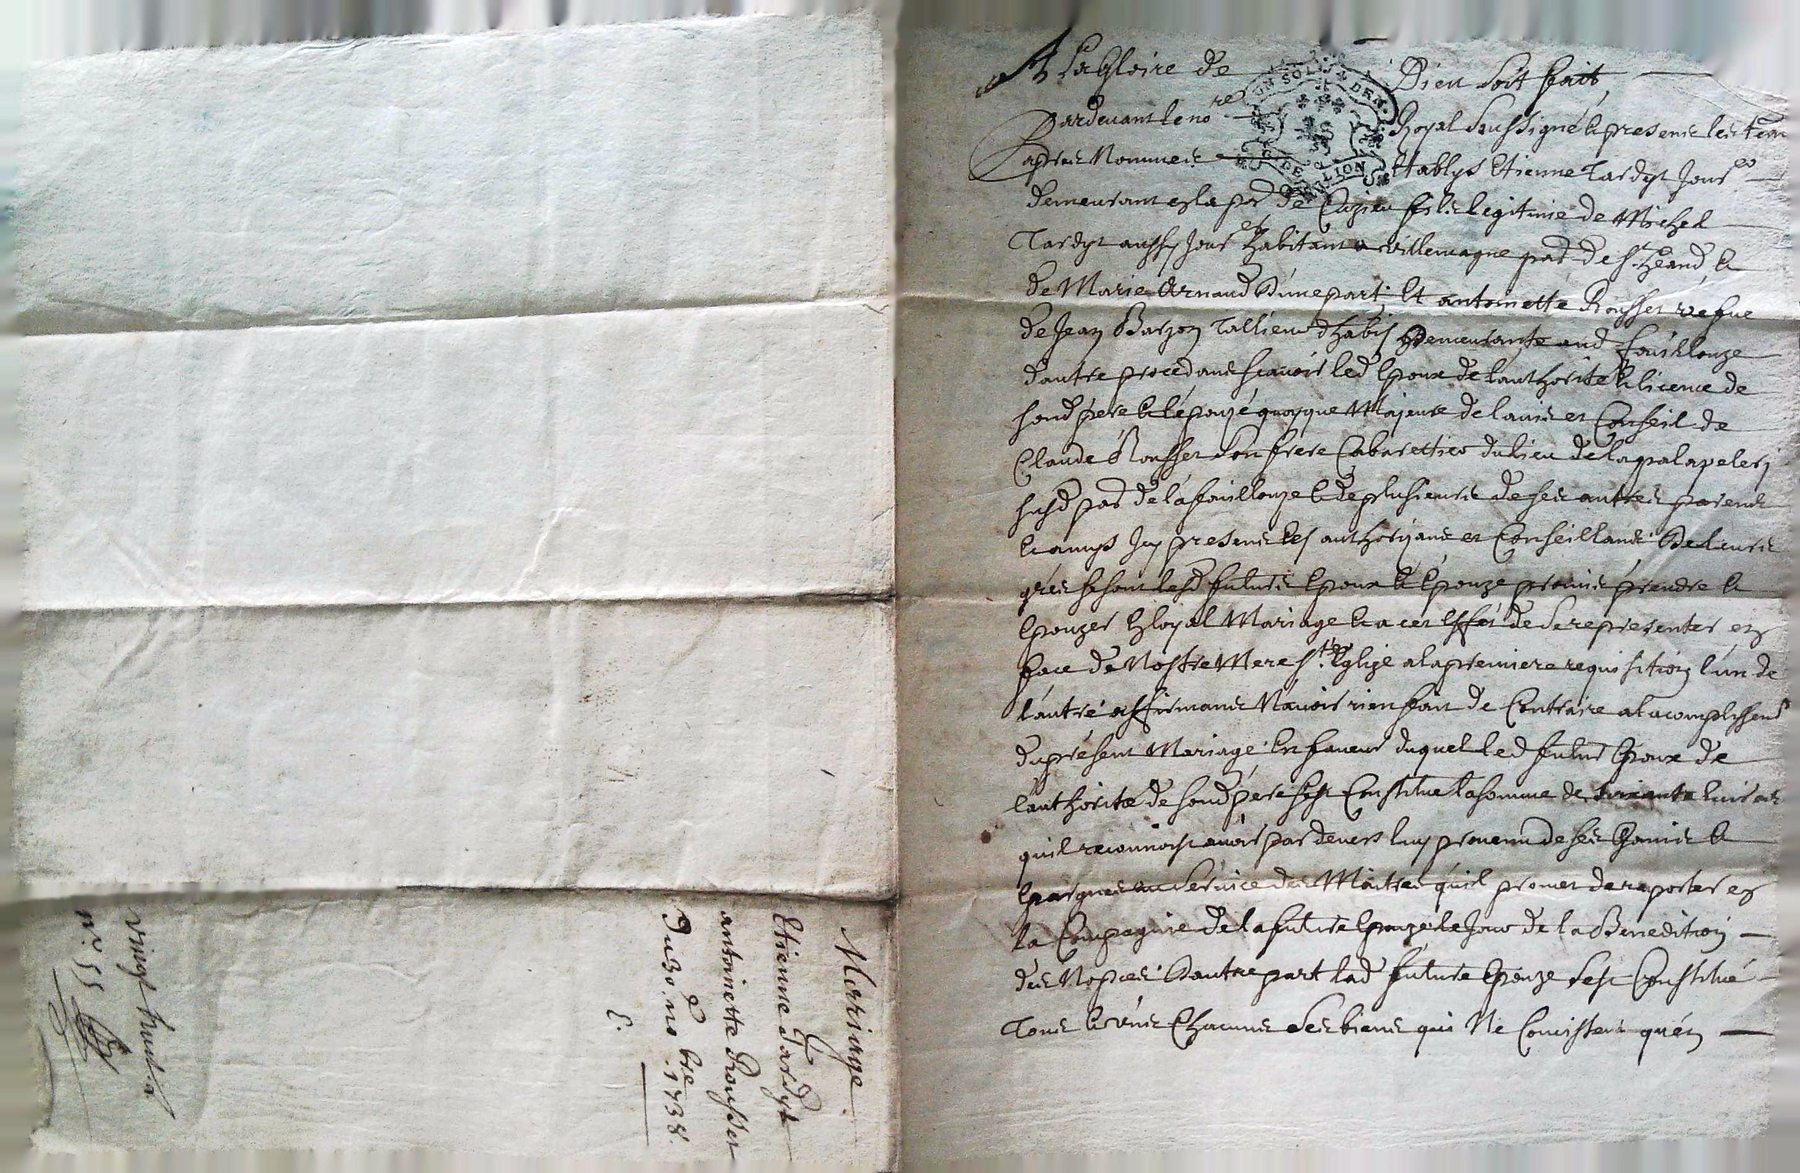 A la Gloire de Dieu soit fait,
Pardevant le no.re Royal soussigné & presens les tem
apres Nommes Etablys Etienne Tardyt Jour.er
demeurant e la par de Cuzieu fils legitime de Michel
Tardyt aussy Jour.er habitant a Villemagne par de St heand, &
de Marie Arnaud D'une part; Et antoinette Rousset vefve
de Jean Barzon Tallieur d'habis demeurante aud fouillouze
d'autre procedans scavoir led Epoux de l'authorité & licence de
sond pere & l'épouze quoyque Majeure de l'avis et Conseil de
Claude Rousset son frere Cabarettier du lieu de la
susd par de la fouillouze & de plusieurs de ses autres parens
& amys Icy presens les authorizans et Conseillans De leurs
gres se sont lesd futurs Epoux & Epouze promis prendre &
Epouzer Loyal Mariage & a cet effet de se representer en
face de Nostre Mere S.te Eglize a la premiere requisition l'un de
l'autre affirmans N'avoir rien fait de Contraire a l'acomplissem.t
du present Mariage En faveur duquel led futur Epoux de
l'authorité de sond pere s'est Constitué la somme de livres
qu'il reconnoist avoir par devers luy provenu de ses Gains &
Epargnes au service des Maitres qu'il promet de raporter en
la Compagnie de la future Epouze le Jour de la Benedition
des Nopces: D'autre part lad future Epouze s'est Constitué
Tous & uns Chacuns ses biens qui Ne Concistent qu'en
Mariage
D'
Etienne Tardyt
&
antoinette Rousset
Du 30 no.bre 1738.
C.
vingt huit
n.o 55